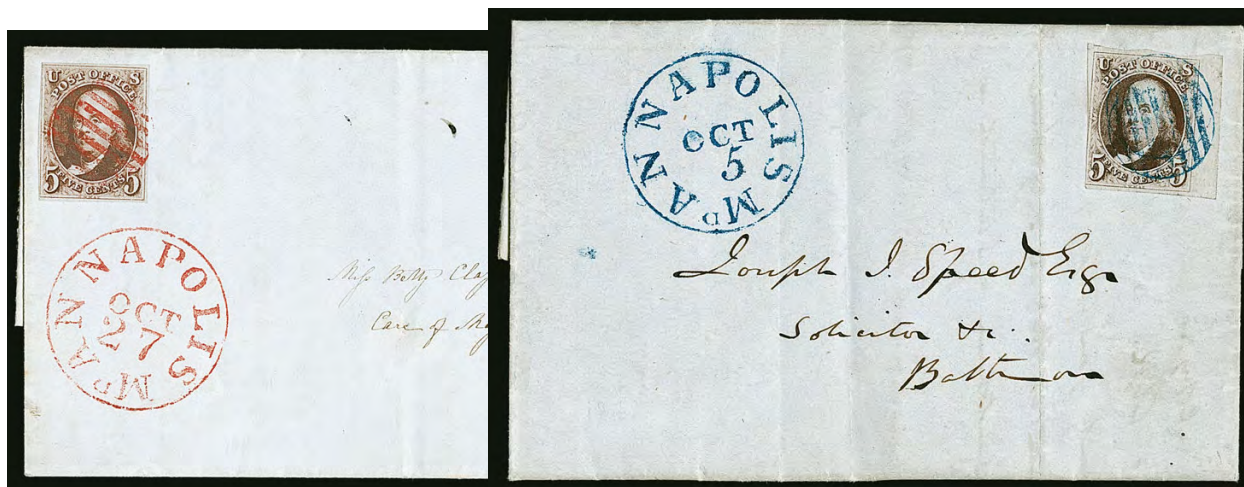 U S
POST OFFICE
5 FIVE CENTS 5
ANNAPOLIS Md
OCT
27
Miss Betty Clay
Care of
ANNAPOLIS Md
OCT
5
U S
POST OFFICE
5 FIVE CENTS 5
Joseph J. Speed Esqr
Solicitor &c.
Baltimore